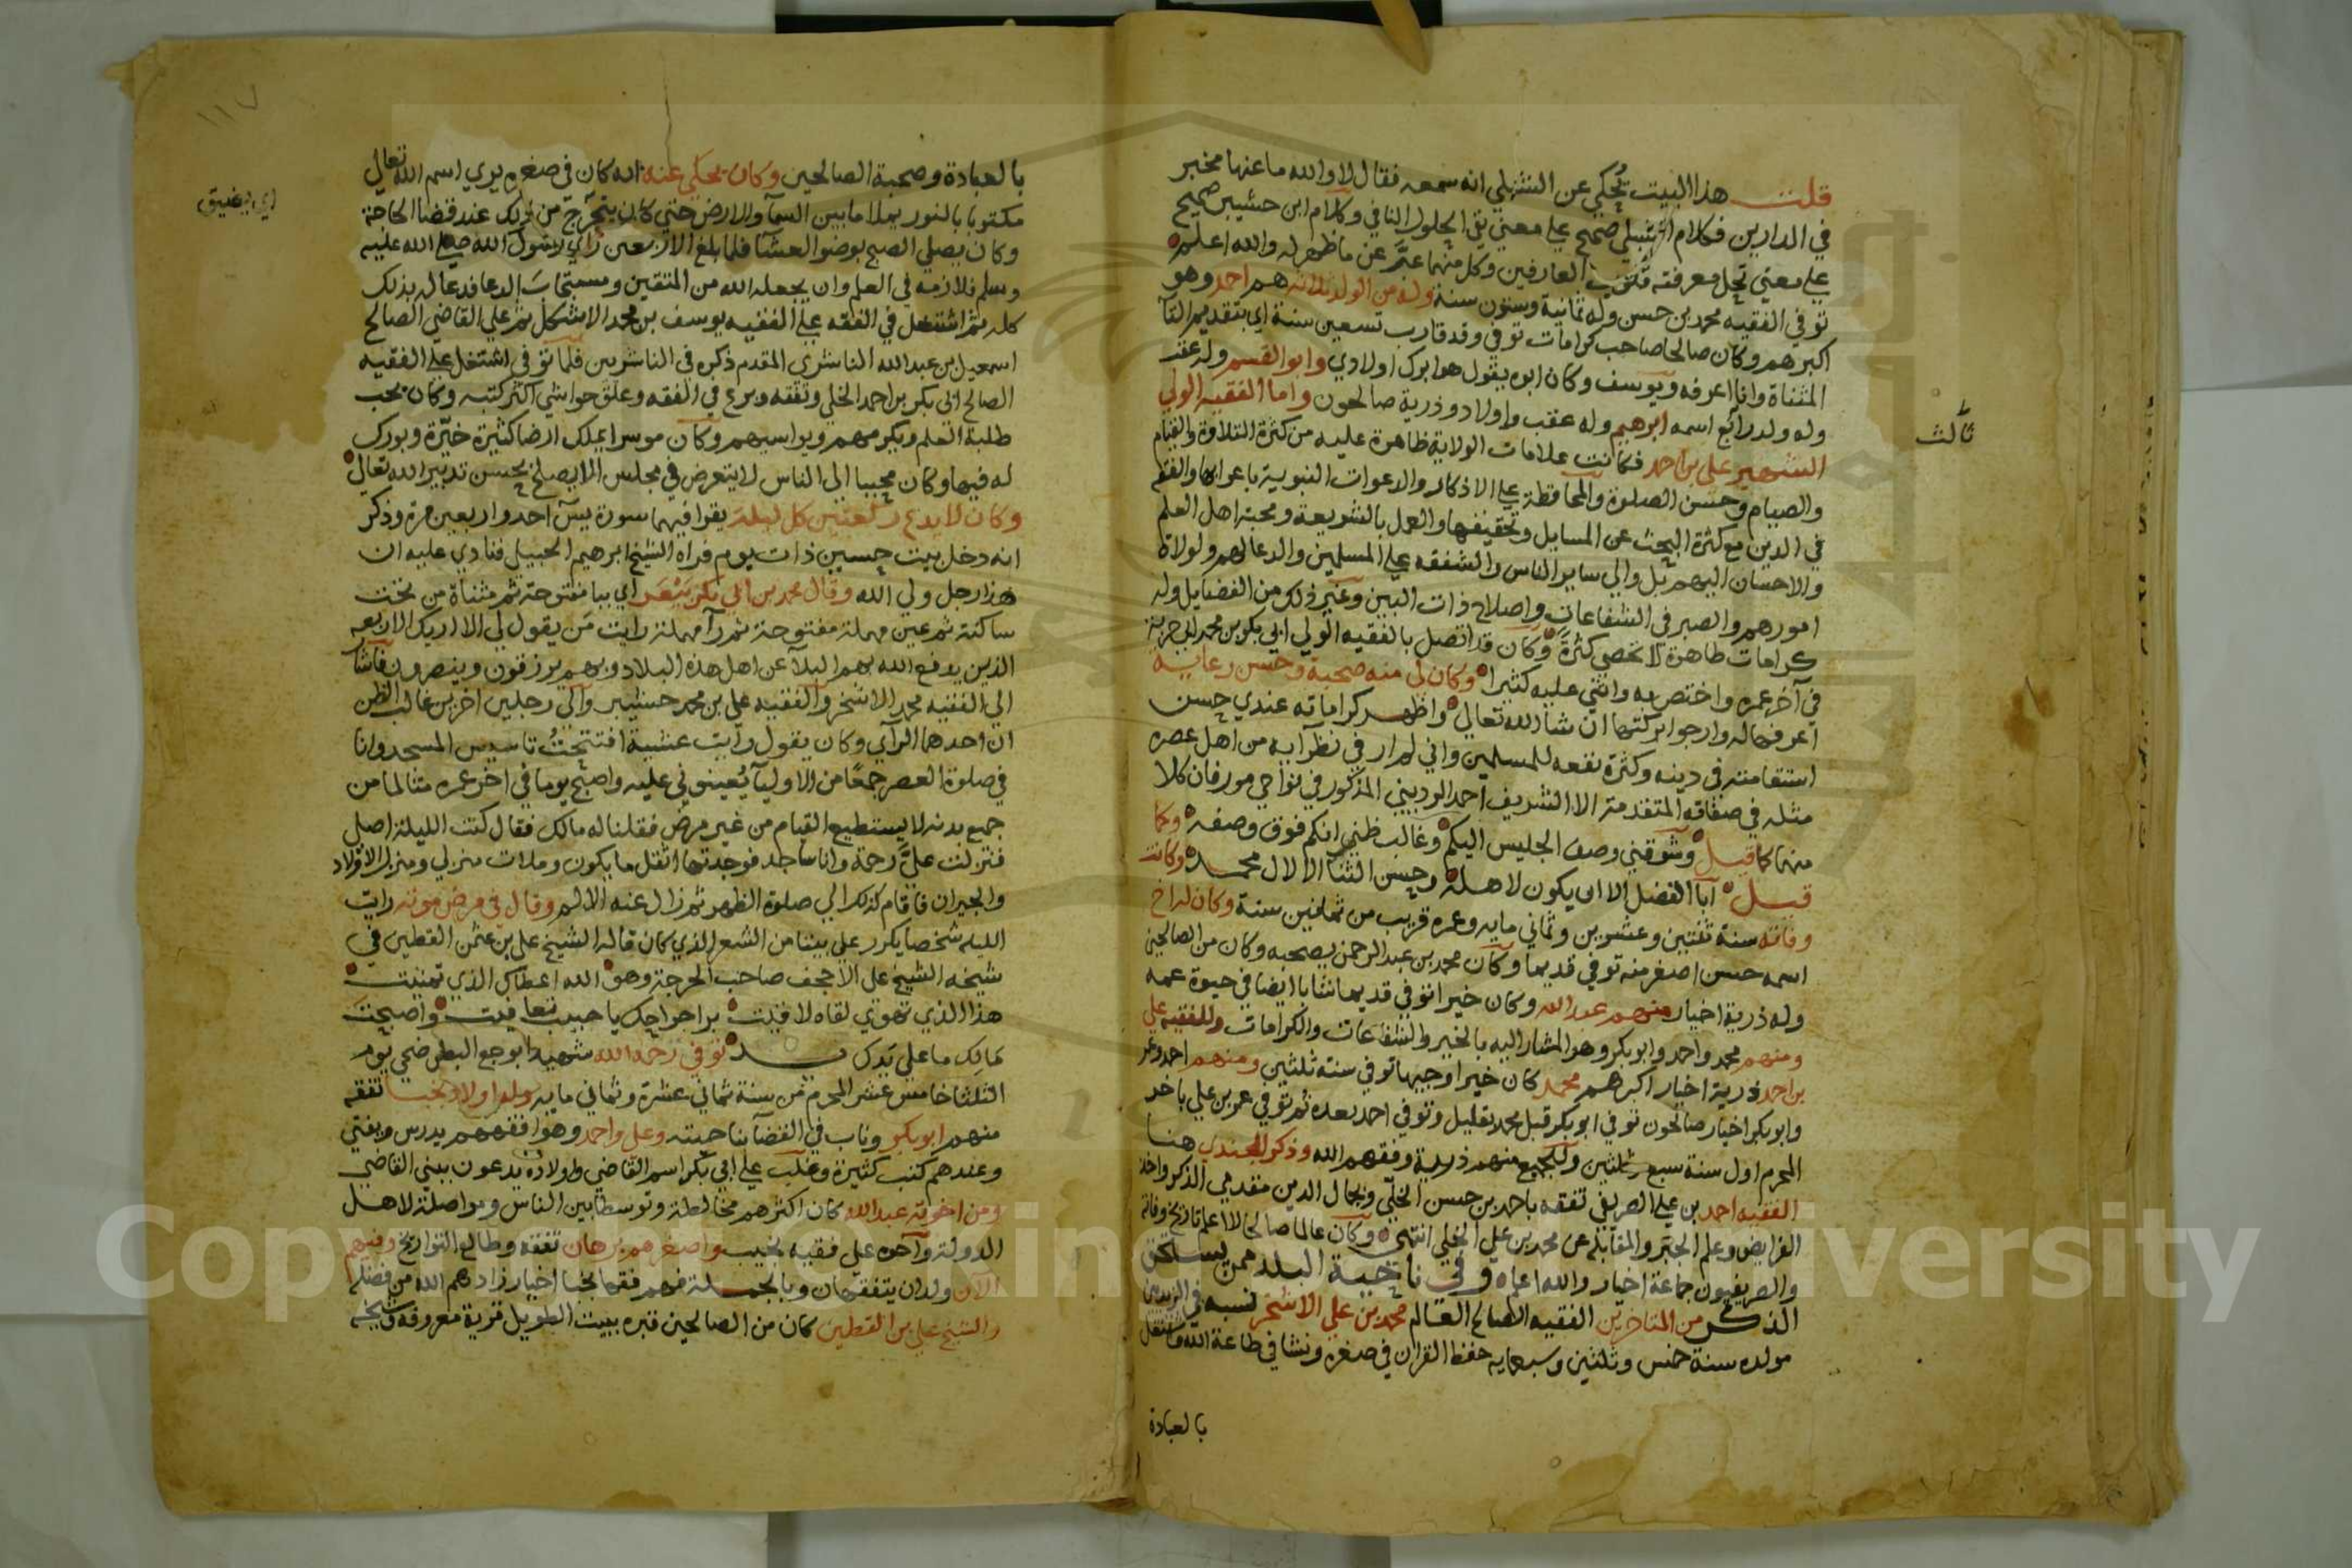 قلت هذا البيت يحكي عن الشبلي انه سمعه فقال لا والله ما عنها مخبر
في الدارين فكلام الشبلي صحيح على معني نفي الحلول النافي وكلام ابن حشيبر صحيح
على معني تحل معرفته قلوب العارفين وكل منهما عبر عن ما ظهر له والله اعلم
توفي الفقيه محمد بن حسن وله ثمانية وستون سنة وله من الولد ثلاثة هم احمد وهو
اكبرهم وكان صالحا صاحب كرامات توفي وقد قارب تسعين سنة اي بتقديم التآ
المثناة وانا اعرفه ويوسف وكان ابوه يقول هو ابرك اولادي وابو القسم وله عقب
وله ولد رابع اسمه ابرهيم وله عقب واولاد وذرية صالحون واما الفقيه الولي
ثالث
الشهير علي بن احمد فكانت علامات الولاية ظاهرة عليه من كثرة التلاوة والقيام
والصيام وحسن الصلوة والمحافظة على الاذكار والدعوات النبوية باعرابها والفقه
في الدين مع كثرة البحث عن المسايل وتحقيقها والعمل بالشريعة ومحبة اهل العلم
والاحسان اليهم بل والي ساير الناس والشفقه على المسلمين والدعا لهم ولولاة
امورهم والصبر في الشفاعات واصلاح ذات البين وغير ذلك من الفضايل وله
كرامات ظاهرة لا تحصي كثرة وكان قد اتصل بالفقيه الولي ابي بكر بن محمد ابي حربة
في آخر عمره واختص به واثني عليه كثيرا وكان لي منه صحبة وحسن رعاية
اعرفها له وارجوا بركتها ان شا الله تعالي واظهر كراماته عندي حسن
استقامته في دينه وكثرة نفعه للمسلمين واني لم ار في نظرآيه من اهل عصره
مثله في صفاته المتقدمة الا الشريف احمد الرديني المذكور في نواحي مور فان كلا
منهما كما قيل وشوقني وصف الجليس اليكم وغالب ظني انكم فوق وصفه وكما
قيل ابا الفضل الا ان يكون لاهله وحسن الثنا الا لال محمد وكانت
وفاته سنة ثنتين وعشرين وثماني مايه وعمره قريب من ثمانين سنة وكان له اخ
اسمه حسن اصغر منه توفي قديما وكان محمد بن عبد الرحمن يصحبه وكان من الصالحين
وله ذرية اخيار منهم عبد الله وكان خيرا توفي قديما شابا ايضا في حيوة عمه
ومنهم محمد واحمد وابو بكر وهو المشار اليه بالخير والشفاعات والكرامات وللفقيه علي
بن احمد ذرية اخيار اكبرهم محمد كان خيرا وجيها توفي سنة ثلثين ومنهم احمد وعمر
وابو بكر اخيار صالحون توفي ابو بكر قبل محمد بقليل وتوفي احمد بعده ثم توفي عمر بن علي باخر
المحرم اول سنة سبع ثلثين وللجميع منهم ذرية وفقهم الله وذكر الجندي هنا
الفقيه احمد بن علي الصريفي تفقه باحمد بن حسن الخلي وبجمال الدين متقدمي الذكر واخذ
الفرايض وعلم الجبر والمقابله عن محمد بن علي الخلي انتهي وكان عالما صالحا لا اعلم تاريخ وفاته
والصريفيون جماعة اخيار والله اعلم وفي ناحية البلد ممن يستحق
الذكر من المتاخرين الفقيه الصالح العالم محمد بن علي الاشخر نسبه في الزيديين
مولده سنة خمس وثلثين وسبعمايه حفظ القران في صغره ونشا في طاعة الله واشتغل
بالعبادة
١١٧
بالعبادة وصحبة الصالحين وكان يحكي عنه انه كان في صغره يري اسم الله تعالي
مكتوبا بالنور يملا ما بين السمآ والارض حتي كان يتحرج من ذلك عند قضا الحاجة
وكان يصلي الصبح بوضو العشآ فلما بلغ الاربعين راي رسول الله صلى الله عليه
وسلم فلازمه في العلم وان يجعله الله من المتقين ومستجاب الدعا فدعا له بذلك
كله ثم اشتغل في الفقه على الفقيه يوسف بن محمد الاشكل ثم علي القاضي الصالح
اسمعيل بن عبد الله الناشري المقدم ذكره في الناشريين فلما توفي اشتغل على الفقيه
الصالح ابي بكر بن احمد الخلي وتفقه وبرع في الفقه وعلق حواشي اكثر كتبه وكان يحب
طلبة العلم ويكرمهم ويواسيهم وكان موسرا يملك ارضا كثيرة خيرة وبورك
له فيها وكان محببا الي الناس لا يتعرض في مجلس الا يصلح بحسن تدبير الله تعالي
وكان لا يدع ركعتين كل ليلة يقرا فيهما سورة يس احد واربعين مرة وذكر
انه دخل بيت حسين ذات يوم فراه الشيخ ابرهيم الحبيل فنادي عليه ان
هذا رجل ولي الله وقال محمد بن ابي بكر بيعر اي ببا مفتوحة ثم مثناة من تحت
ساكنة ثم عين مهملة مفتوحة ثم رآ مهملة رايت من يقول لي الا اريك الاربعه
الذين يدفع الله بهم البلآ عن اهل هذه البلاد وبهم يرزقون وينصرون فاشار
الي الفقيه محمد الاشخر والفقيه علي بن محمد حشيبر والي رجلين اخرين غالب الظن
ان احدهما الرآي وكان يقول رايت عشية افتتحت تاسيس المسجد وانا
في صلوة العصر جمعا من الاوليآ يعينوني عليه واصبح يوما في اخر عمره متالما من
جميع بدنه لا يستطيع القيام من غير مرض فقلنا له مالك فقال كنت الليلة اصلي
فنزلت علي رحمة وانا ساجد فوجدتها اثقل ما يكون وملات منزلي ومنزل الاولاد
والجيران فاقام كذلك الي صلوة الظهر ثم زال عنه الالم وقال في مرض موته رايت
الليله شخصا يكرر علي بيتا من الشعر الذي كان قاله الشيخ علي بن عثمن القطين في
شيخه الشيخ علي الاحجف صاحب الحرجة وهو الله اعطاك الذي تمنيت
هذا الذي تهوي لقاه لاقيت براحواجك يا حبيب تعافيت واصبحت
مالك ما علي يدك يد توفي رحمه الله شهيدا بوجع البطن ضحي يوم
الثلثا خامس عشر المحرم من سنة ثماني عشرة وثماني مايه وله اولاد نجبا تفقه
منهم ابو بكر وناب في القضا بناحيته وعلي واحمد وهو افقههم يدرس ويفتي
وعندهم كتب كثيرة وغلب علي ابي بكر اسم القاضي واولاده يدعون ببني القاضي
ومن اخوته عبد الله كان اكثرهم مخالطة وتوسطا بين الناس ومواصلة لاهل
الدولة وآخره علي فقيه نجيب واصغرهم برهان تفقه وطالع التواريخ ومنهم
الان ولدان يتفقهان وبالجملة فهم فقها نجبا اخيار زادهم الله من فضله
والشيخ علي بن القطين كان من الصالحين قبره ببيت الطويل قرية معروفة وشيخه
Copy King University